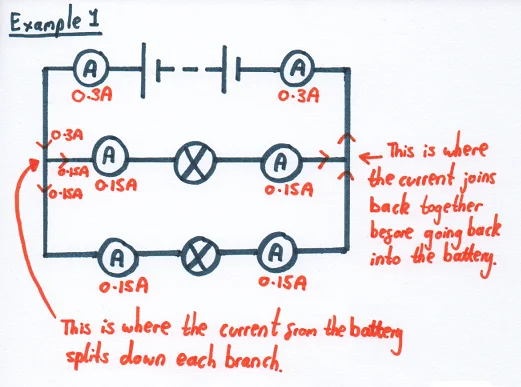 Example 1
A
A
0.3A
0.3A
0.3A
0.15A
0.15A
A
A
0.15A
0.15A
This is where
the current joins
back together
before going back
into the battery.
A
A
0.15A
0.15A
This is where the current from the battery
splits down each branch.